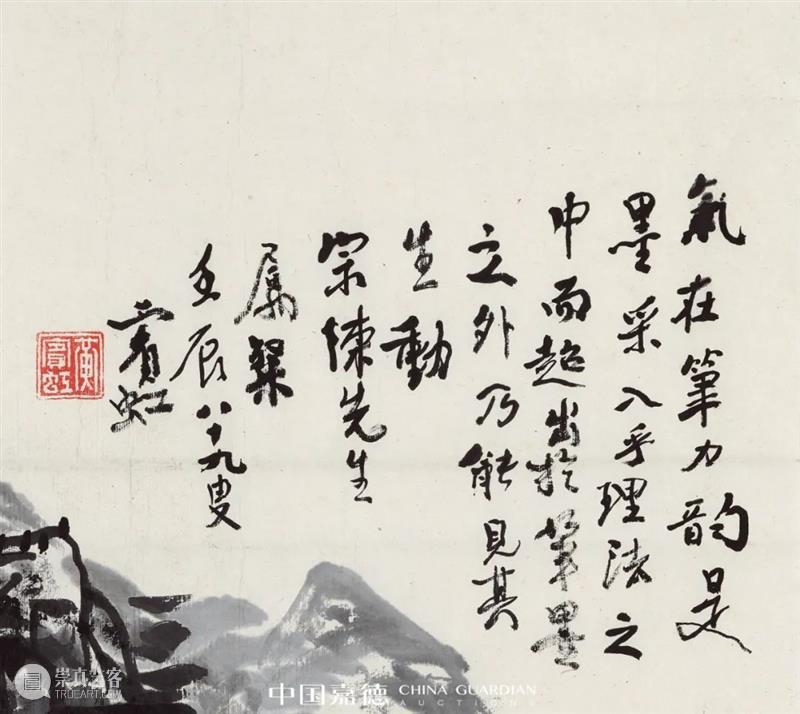 氣在筆力韵是
墨采入乎理法之
中而超出於筆墨
之外乃能見其
生動
宗練先生
屬粲
壬辰八十九叟
賓虹
黃賓虹
中国嘉德 CHINA GUARDIAN
AUCTIONS
崇真艺客
TRUEART.COM